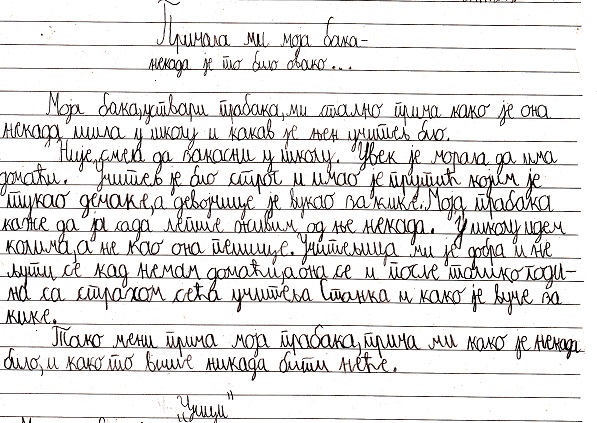 Причала ми моја бака-
некада је то било овако...
Моја бака, уствари прабака, ми стално прича како је она
некада ишла у школу и какав је њен учитељ био.
Није смела да закасни у школу. Увек је морала да има
домаћи. Учитељ је био строг и имао је прутић којим је
тукао дечаке, а девојчице је вукао за кике. Моја прабака
каже да ја сада лепше живим од ње некада. У школу идем
колима, а не као она пешице. Учитељица ми је добра и не
љути се кад немам домаћи, а она се и после толико годи-
на са страхом сећа учитеља Станка и како је вуче за
кике.
Тако мени прича моја прабака, прича ми како је некада
било, и како то више никада бити неће.